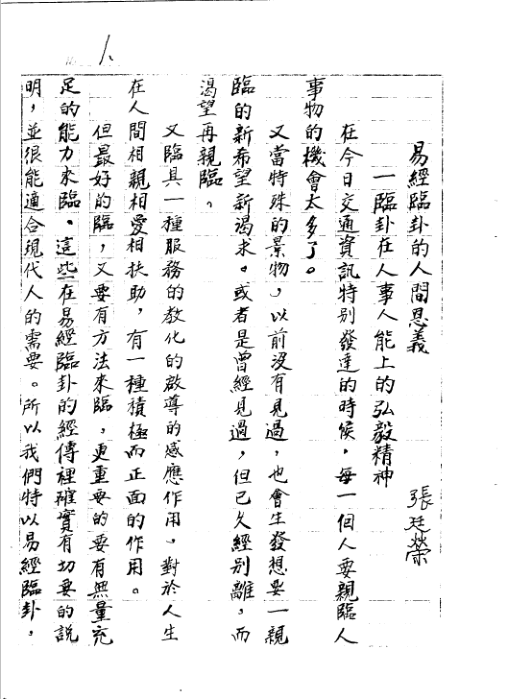 易經臨卦的人間恩義
張廷榮
一臨卦在人事人能上的弘毅精神
在今日交通資訊特別發達的時候，每一個人要親臨人
事物的機會太多了。
又當特殊的景物，以前沒有見過，也會生發想要一親
臨的新希望新渴求。或者是曾經見過，但已久經別離，而
渴望再親臨。
又臨具一種服務的教化的啟導的感應作用，對於人生
在人間相親相愛相扶助，有一種積極而正面的作用。
但最好的臨，又要有方法來臨，更重要的要有無量充
足的能力來臨。這些在易經臨卦的經傳裡確實有切要的說
明，並很能適合現代人的需要。所以我們特以易經臨卦，